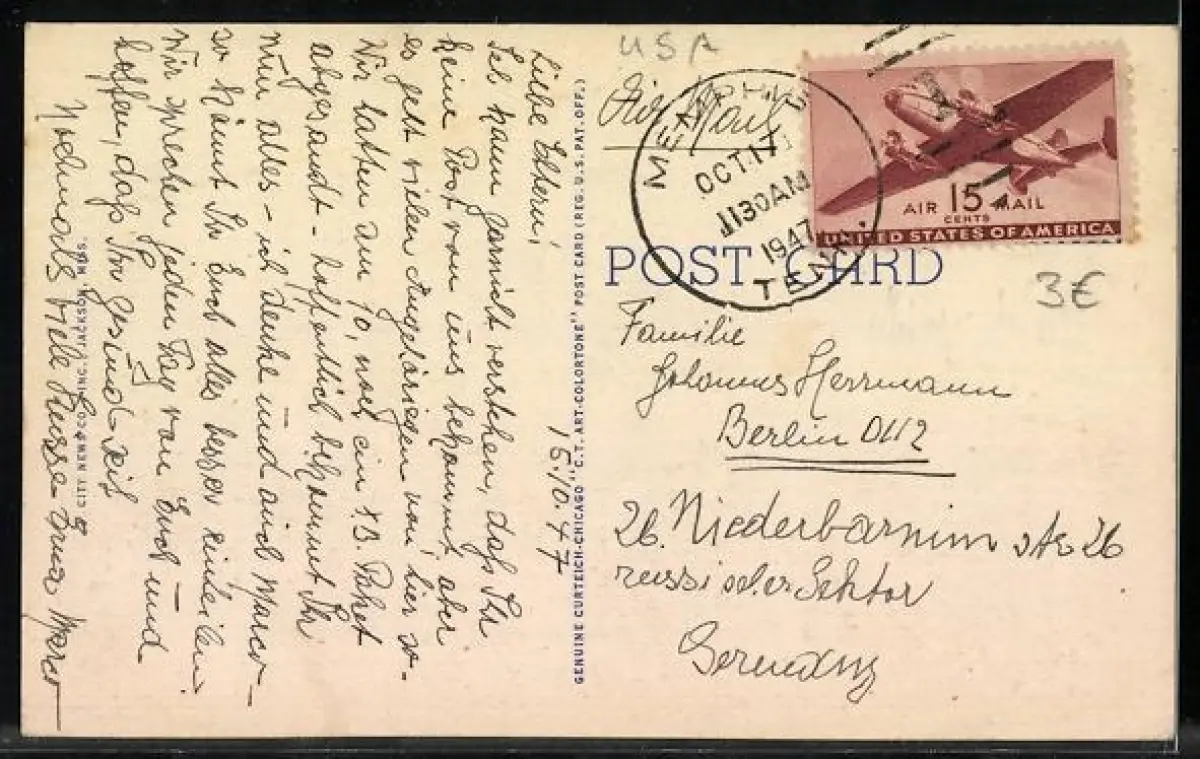 USA
Air Mail
MEMPHIS
OCT 17
1130AM
1947
TENN.
AIR 15 MAIL
CENTS
UNITED STATES OF AMERICA
POST CARD
3€
Familie
Johannes Herrmann
Berlin O112
26. Niederbarnim str 26
russischer Sektor
Germany
GENUINE CURTEICH-CHICAGO "C.T. ART-COLORTONE" POST CARD (REG. U.S. PAT. OFF.)
15.10.47
Liebe Eltern!
Ich kann garnicht verstehen, daß Ihr
keine Post von uns bekommt aber
es geht vielen Angehörigen von hier so-
Wir hatten am 10. noch ein Paket
abgesandt - hoffentlich bekommt Ihr
nun alles - ich denke und auch Marco -
so könnt Ihr Euch alles besser einteilen.
Wir sprechen jeden Tag von Euch und
hoffen, daß Ihr gesund seid
Nochmals viele Küsse Marco
CITY NEWS CO., INC., JACKSON, MISS.